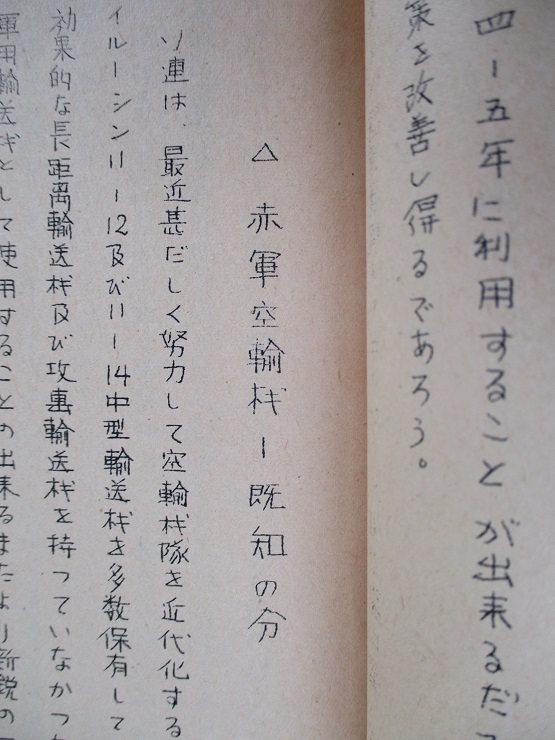 四ー五年に利用することが出来るだ
策を改善し得るであろう。
△ 赤軍空輸栈ー既知の分
ソ連は、最近甚だしく努力して空輸栈隊を近代化する
イルーシン11ー12及び11ー14中型輸送栈を多数保有して
効果的な長距離輸送栈及び攻裏輸送栈を持っていなかつ
軍用輸送栈として使用することの出来るまたより新鋭の